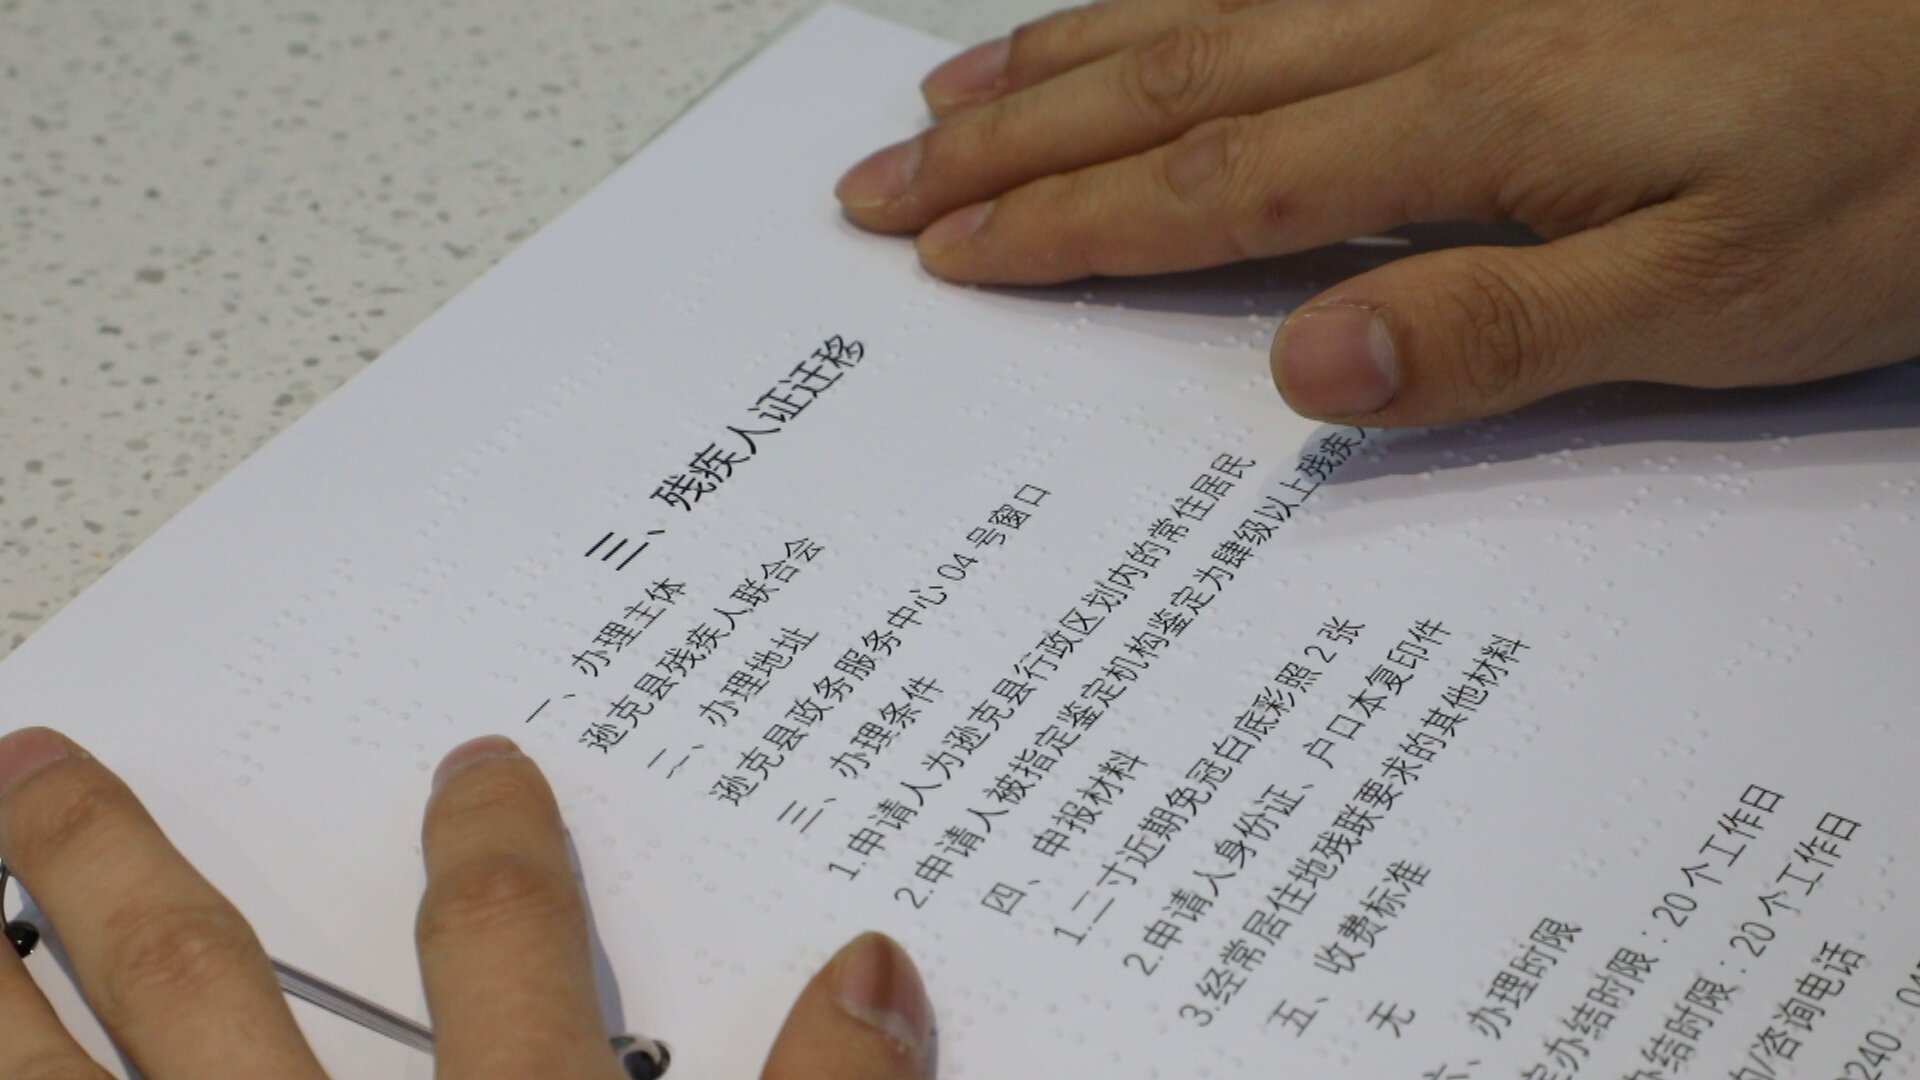 三、残疾人证迁移
一、办理主体
逊克县残疾人联合会
二、办理地址
逊克县政务服务中心 04 号窗口
三、办理条件
1.申请人为逊克县行政区划内的常住居民
2.申请人被指定鉴定机构鉴定为肆级以上残疾
四、申报材料
1.二寸近期免冠白底彩照 2 张
2.申请人身份证、户口本复印件
3.经常居住地残联要求的其他材料
五、收费标准
无
六、办理时限
定办结时限：20 个工作日
办结时限：20 个工作日
/咨询电话
240